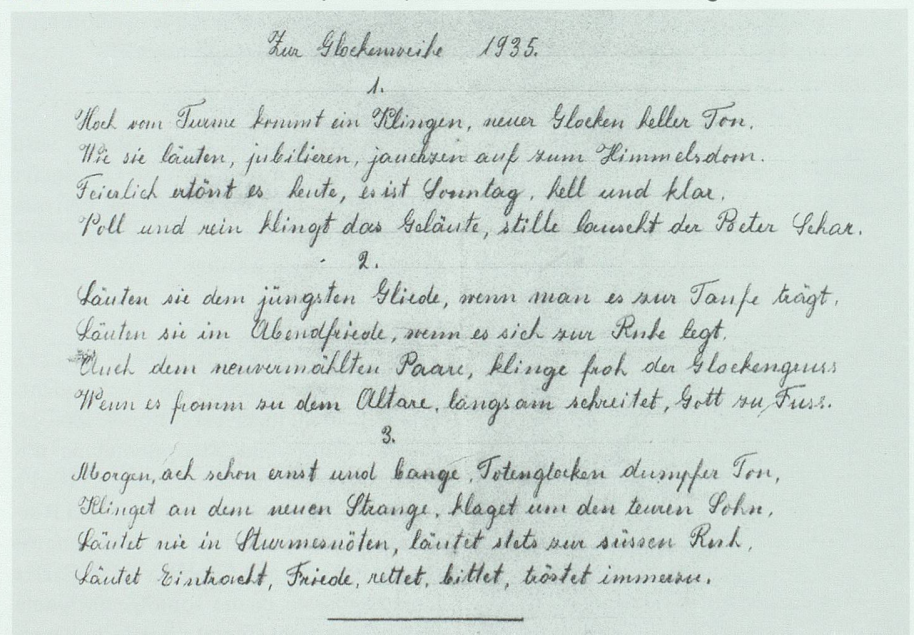 Zur Glockenweihe 1935.
1.
Hoch vom Turme kommt ein Klingen, neuer Glocken heller Ton.
Wie sie läuten, jubilieren, jauchzen auf zum Himmelsdom.
Feierlich ertönt es heute, es ist Sonntag, hell und klar.
Voll und rein klingt das Geläute, stille lauscht der Beter Schar.
2.
Läuten sie dem jüngsten Gliede, wenn man es zur Taufe trägt,
Läuten sie im Abendfriede, wenn es sich zur Ruhe legt.
Auch dem neuvermählten Paare, klinge froh der Glockengruss
Wenn es fromm zu dem Altare, langsam schreitet, Gott zu Fuss.
3.
Morgen, ach schon ernst und bange, Totenglocken dumpfer Ton,
Klinget an dem neuen Strange, klaget um den teuren Sohn,
Läutet nie in Sturmesnöten, läutet stets zur süssen Ruh,
Läutet Eintracht, Friede, rettet, bittet, tröstet immerzu.